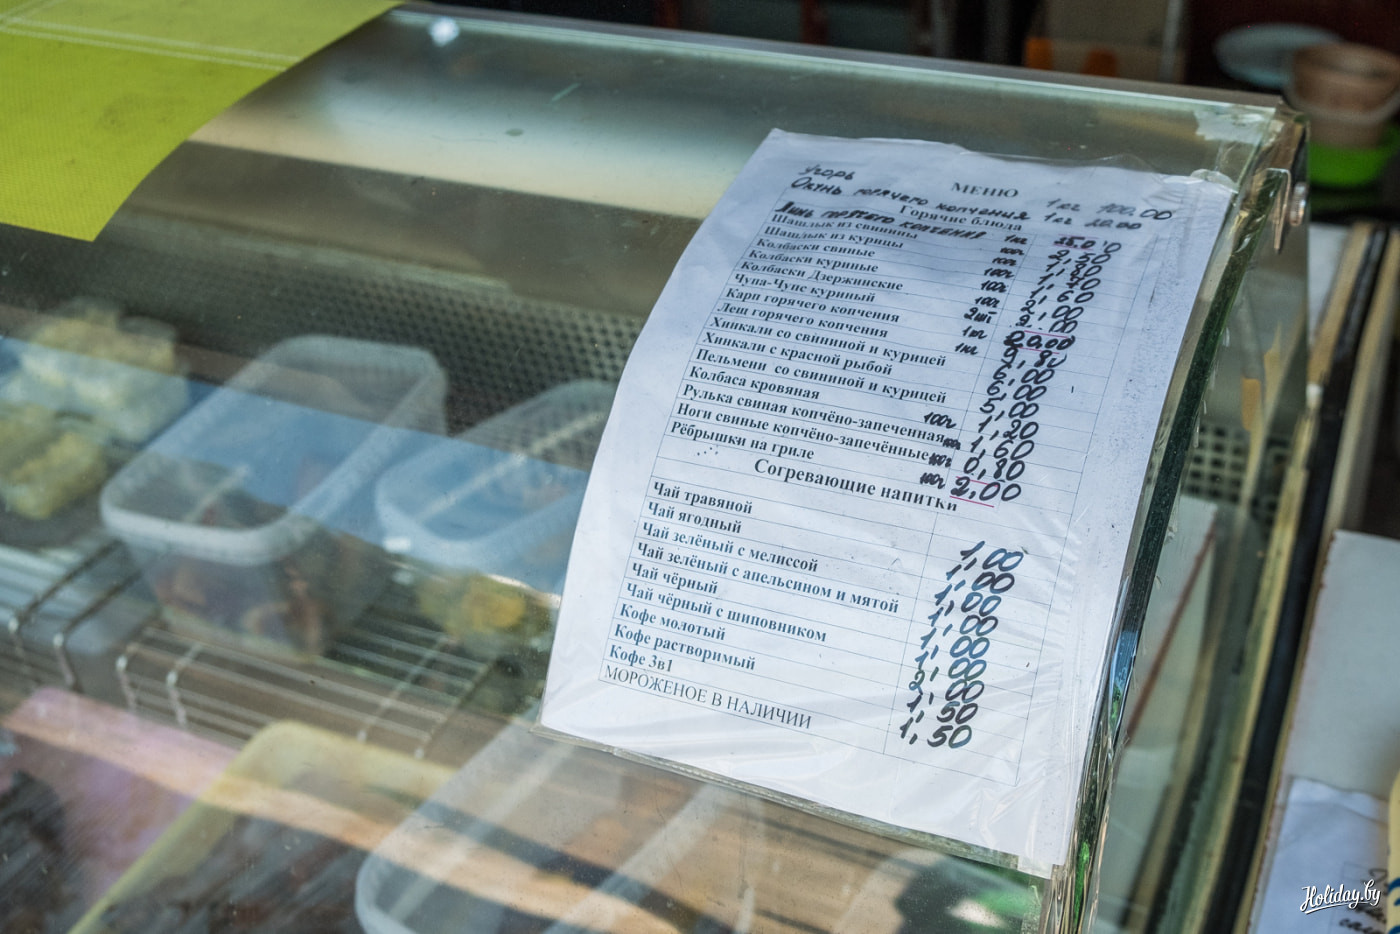 Угорь 1 кг 100,00
МЕНЮ
Окунь горячего копчения 1 кг 20.00
Горячие блюда
Линь горячего копчения 1кг 25.00
Шашлык из свинины 100г 2,50
Шашлык из курицы 100г 1,80
Колбаски свиные 100г
Колбаски куриные 100г 1,60
Колбаски Дзержинские 100г 2,00
Чупа-Чупс куриный 2шт 2,00
Карп горячего копчения 1кг 20,00
Лещ горячего копчения 1кг 9,80
Хинкали со свининой и курицей 6,00
Хинкали с красной рыбой 6,00
Пельмени со свининой и курицей 5,00
Колбаса кровяная 100г 1,20
Рулька свиная копчёно-запеченная 100г 1,60
Ноги свиные копчёно-запечённые 100г 0,80
Рёбрышки на гриле 100г 2,00
Согревающие напитки
Чай травяной 1,00
Чай ягодный 1,00
Чай зелёный с мелиссой 1,00
Чай зелёный с апельсином и мятой 1,00
Чай чёрный 1,00
Чай чёрный с шиповником 1,00
Кофе молотый 2,00
Кофе растворимый 1,50
Кофе 3в1 1,50
МОРОЖЕНОЕ В НАЛИЧИИ
Holiday.by